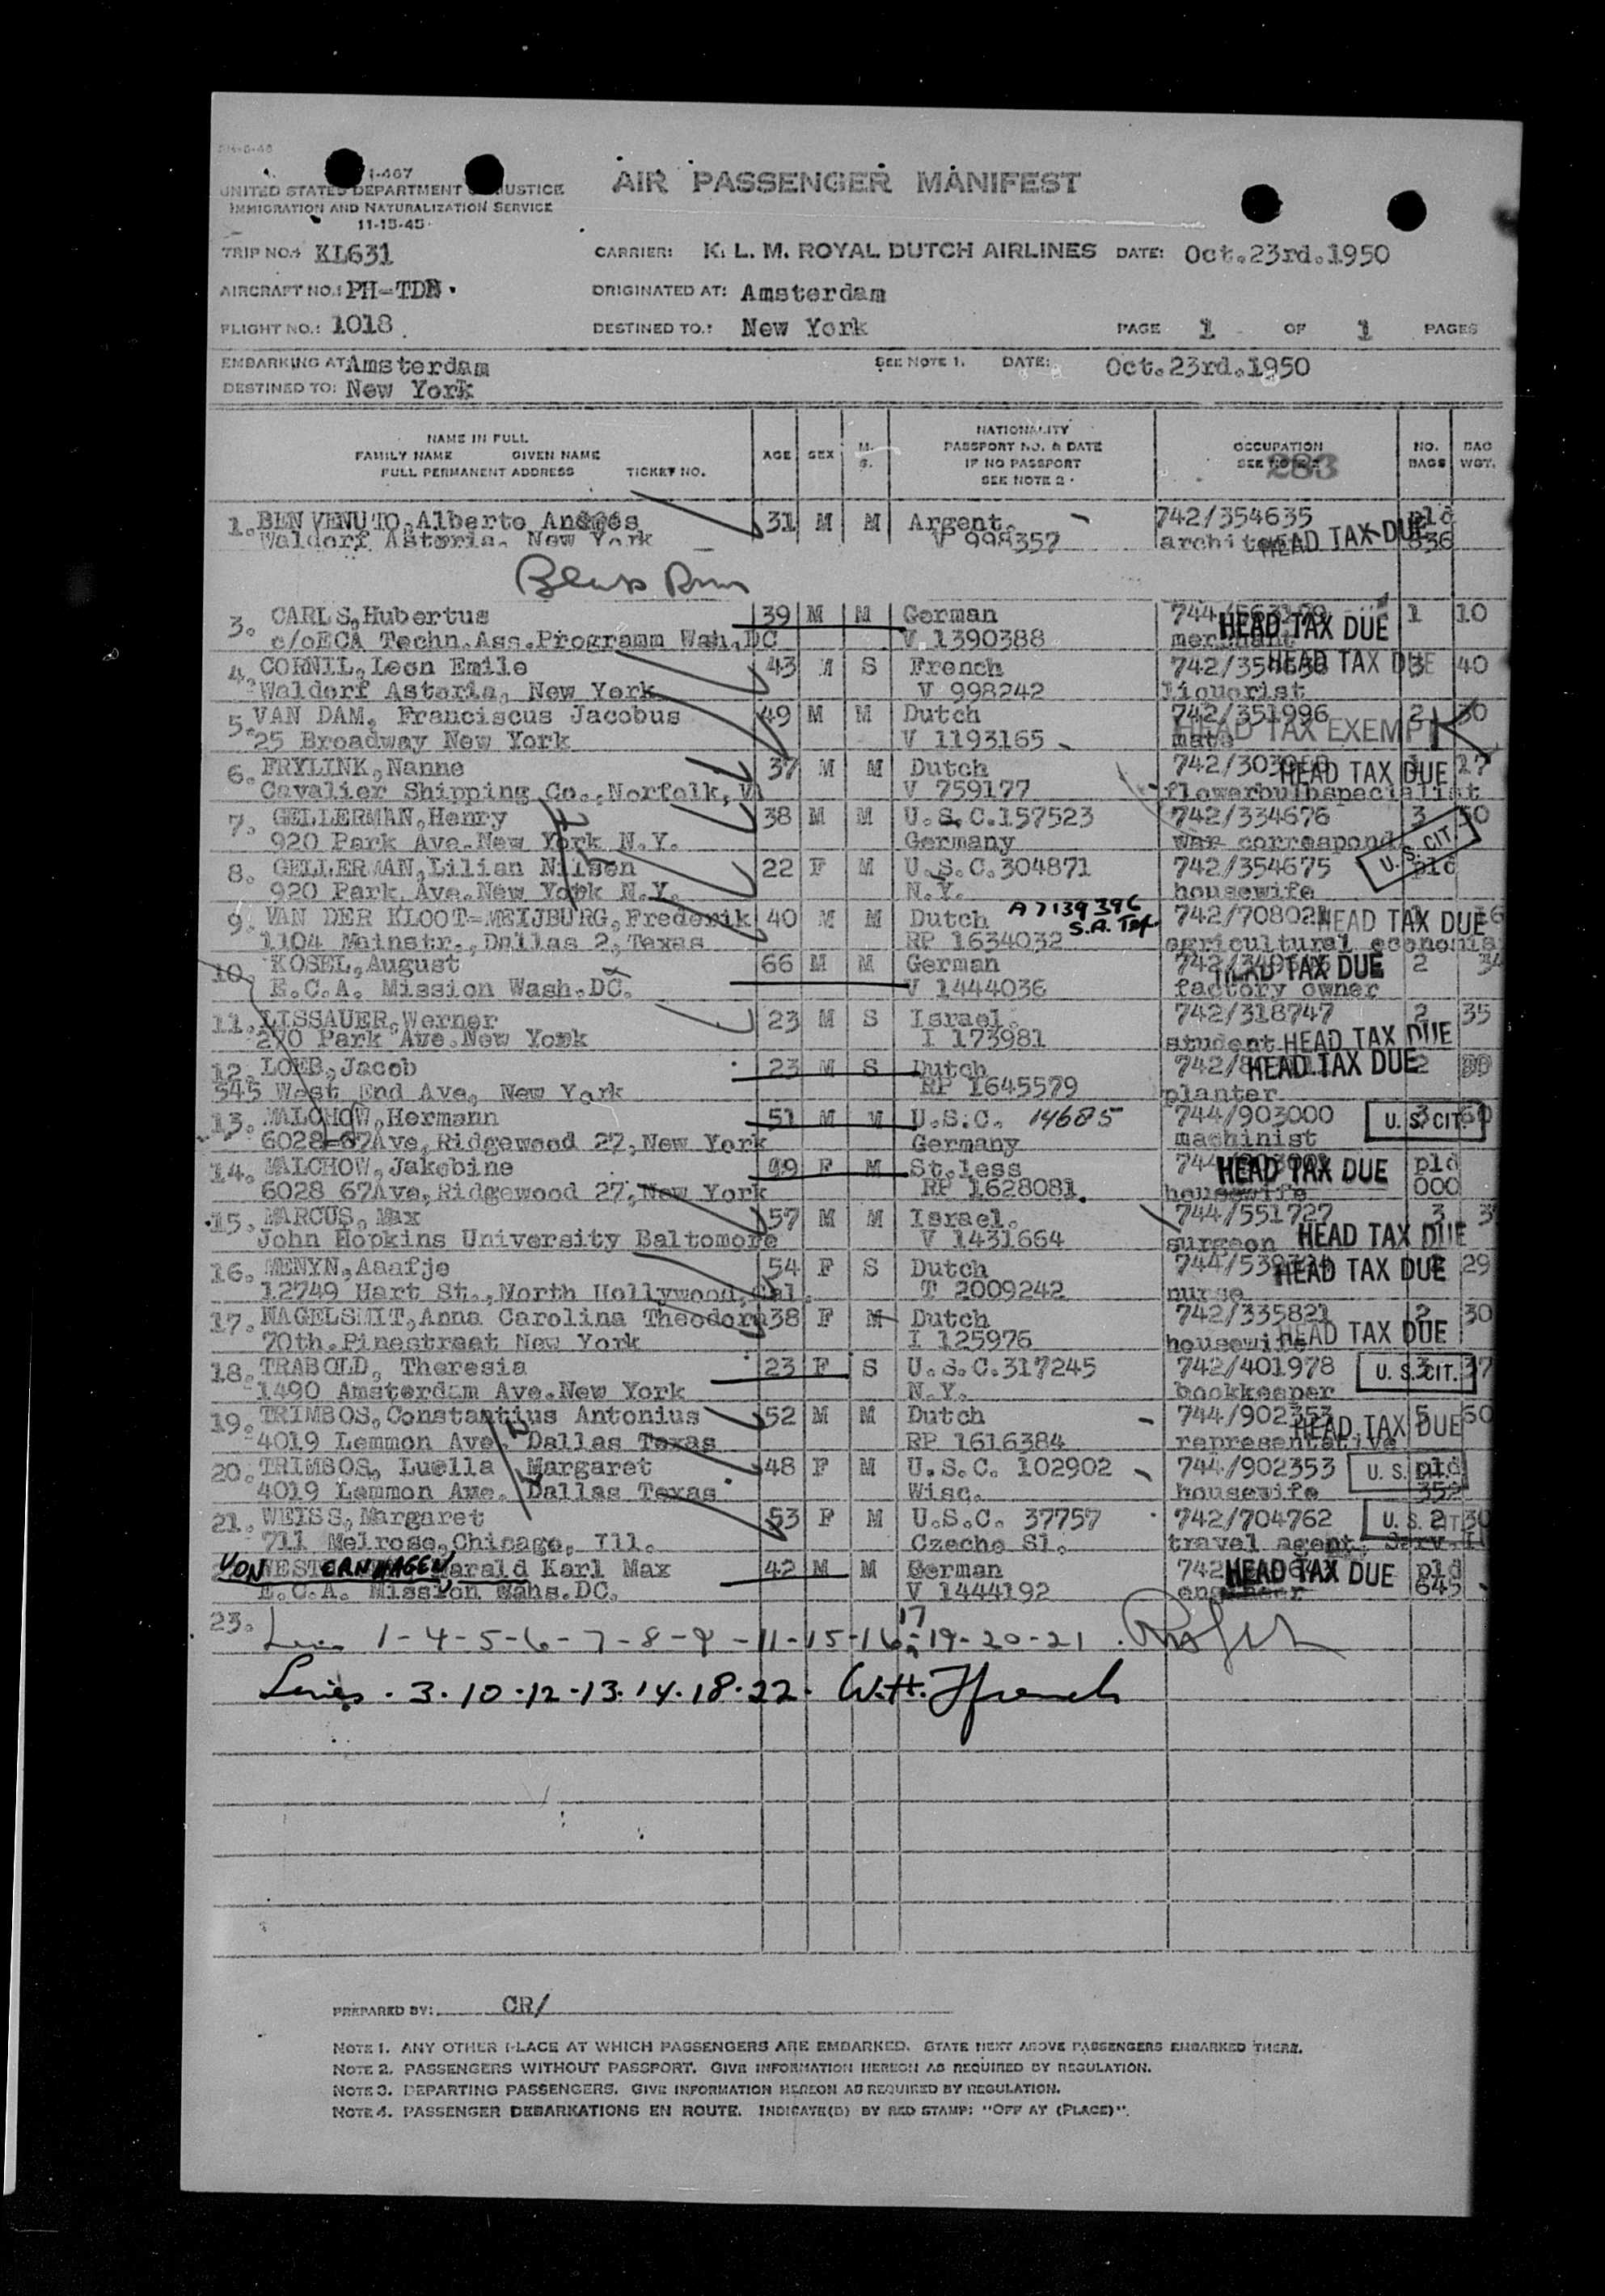 I-467
UNITED STATES DEPARTMENT JUSTICE
IMMIGRATION AND NATURALIZATION SERVICE
11-15-45
AIR PASSENGER MANIFEST
TRIP NO.: KL631 CARRIER: K. L. M. ROYAL DUTCH AIRLINES DATE: Oct.23rd.1950
AIRCRAFT NO.: PH-TDB. ORIGINATED AT: Amsterdam
FLIGHT NO.: 1018 DESTINED TO.: New York PAGE 1 OF 1 PAGES
EMBARKING AT Amsterdam SEE NOTE 1. DATE: Oct.23rd.1950
DESTINED TO: New York
NAME IN FULL
FAMILY NAME GIVEN NAME
FULL PERMANENT ADDRESS TICKET NO.
AGE SEX M. S.
NATIONALITY
PASSPORT NO. & DATE
IF NO PASSPORT
SEE NOTE 2
OCCUPATION
SEE NOTE
283
NO. BAGS
BAG WGT.
1. BENVENUTO, Alberto Andres 31 M M Argent. 742/354635 pld
Waldorf Astoria. New York V 998357 architect HEAD TAX DUE 636
3. CARLS, Hubertus 39 M M German 744/ 1 10
c/oECA Techn.Ass.Programm Wah.DC V.1390388 merchant HEAD TAX DUE
4. CORNIL, Leon Emile 43 M S French 742/ HEAD TAX DUE 3 40
Waldorf Astoria, New York V 998242 liquorist
5. VAN DAM, Franciscus Jacobus 49 M M Dutch 742/351996 2 30
25 Broadway New York V 1193165 mate HEAD TAX EXEMPT
6. FRYLINK, Nanne 37 M M Dutch 742/ HEAD TAX DUE 17
Cavalier Shipping Co., Norfolk, V V 759177 flowerbulbspecialist
7. GELLERMAN, Henry 38 M M U.S.C.157523 742/334676 3 50
920 Park Ave.New York N.Y. Germany war correspond. U. S. CIT.
8. GELLERMAN, Lilian Nilsen 22 F M U.S.C.304871 742/354675 pld
920 Park Ave.New York N.Y. N.Y. housewife
9. VAN DER KLOOT-MEIJBURG, Frederik 40 M M Dutch A7139396 742/ HEAD TAX DUE
1104 Mainstr., Dallas 2, Texas RP 1634032 S.A. agricultural economis
10. KOSEL, August 66 M M German 742/ HEAD TAX DUE 2 34
E.C.A. Mission Wash.DC. V 1444036 factory owner
11. LISSAUER, Werner 23 M S Israel. 742/318747 2 35
270 Park Ave.New York I 173981 student HEAD TAX DUE
12. LOEB, Jacob 23 M S Dutch 742/ HEAD TAX DUE 2
545 West End Ave, New York RP 1645579 planter
13. MALCHOW, Hermann 51 M M U.S.C. 14685 744/903000 U. S. CIT. 3 60
6028-67Ave, Ridgewood 27, New York Germany machinist
14. MALCHOW, Jakobine 49 F M St.less 744/ HEAD TAX DUE pld
6028 67Ave, Ridgewood 27, New York RP 1628081. housewife 000
15. MARCUS, Max 57 M M Israel. 744/551727 3 3
John Hopkins University Baltomore V 1431664 surgeon HEAD TAX DUE
16. MENYN, Aaafje 54 F S Dutch 744/ HEAD TAX DUE 29
12749 Hart St., North Hollywood, Cal. T 2009242 nurse
17. NAGELSMIT, Anna Carolina Theodora 38 F M Dutch 742/335821 2 30
70th.Pinestreet New York I 125976 housewife HEAD TAX DUE
18. TRABOLD, Theresia 23 F S U.S.C.317245 742/401978 U. S. CIT. 3 37
1490 Amsterdam Ave.New York N.Y. bookkeeper
19. TRIMBOS, Constantius Antonius 52 M M Dutch 744/902353 5 60
4019 Lemmon Ave. Dallas Texas RP 1616384 representative HEAD TAX DUE
20. TRIMBOS, Luella Margaret 48 F M U.S.C. 102902 744/902353 U. S. pld
4019 Lemmon Ave. Dallas Texas Wisc. housewife 352
21. WEISS, Margaret 53 F M U.S.C. 37757 742/704762 U. S. CIT. 2 30
711 Melrose, Chicago, Ill. Czecho Sl. travel agent.
VON WESTERNHAGEN, Harald Karl Max 42 M M German 742 HEAD TAX DUE pld
E.C.A. Mission Wahs.DC. V 1444192 engineer 645
23. Lines 1-4-5-6-7-8-9-11-15-16-17-19-20-21.
Lines. 3.10.12.13.14.18.22. W.H. Ffrench
PREPARED BY: CR/
NOTE 1. ANY OTHER PLACE AT WHICH PASSENGERS ARE EMBARKED. STATE NEXT ABOVE PASSENGERS EMBARKED THERE.
NOTE 2. PASSENGERS WITHOUT PASSPORT. GIVE INFORMATION HEREON AS REQUIRED BY REGULATION.
NOTE 3. DEPARTING PASSENGERS. GIVE INFORMATION HEREON AS REQUIRED BY REGULATION.
NOTE 4. PASSENGER DEBARKATIONS EN ROUTE. INDICATE(D) BY RED STAMP: "OFF AT (PLACE)".